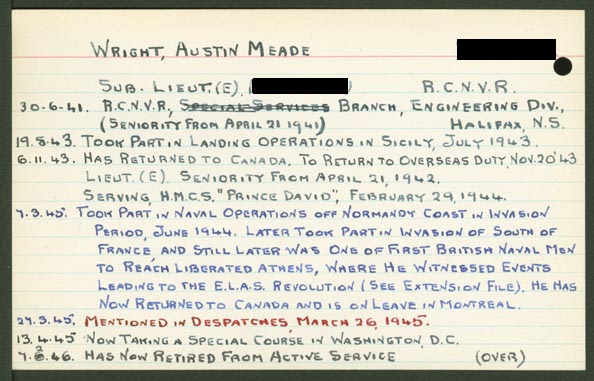 WRIGHT, AUSTIN MEADE
SUB. LIEUT. (E). R.C.N.V.R.
30-6-41. R.C.N.V.R, SPECIAL SERVICES BRANCH, ENGINEERING DIV.,
(SENIORITY FROM APRIL 21 1941) HALIFAX, N.S.
19.8.43. TOOK PART IN LANDING OPERATIONS IN SICILY, JULY 1943.
6.11.43. HAS RETURNED TO CANADA. TO RETURN TO OVERSEAS DUTY, NOV. 20'43
LIEUT. (E). SENIORITY FROM APRIL 21, 1942.
SERVING, H.M.C.S. "PRINCE DAVID", FEBRUARY 29, 1944.
7.3.45. TOOK PART IN NAVAL OPERATIONS OFF NORMANDY COAST IN INVASION
PERIOD, JUNE 1944. LATER TOOK PART IN INVASION OF SOUTH OF
FRANCE, AND STILL LATER WAS ONE OF FIRST BRITISH NAVAL MEN
TO REACH LIBERATED ATHENS, WHERE HE WITNESSED EVENTS
LEADING TO THE E.L.A.S. REVOLUTION (SEE EXTENSION FILE). HE HAS
NOW RETURNED TO CANADA AND IS ON LEAVE IN MONTREAL.
27.3.45. MENTIONED IN DESPATCHES, MARCH 26, 1945.
13.4.45 NOW TAKING A SPECIAL COURSE IN WASHINGTON, D.C.
HAS NOW RETIRED FROM ACTIVE SERVICE (OVER)